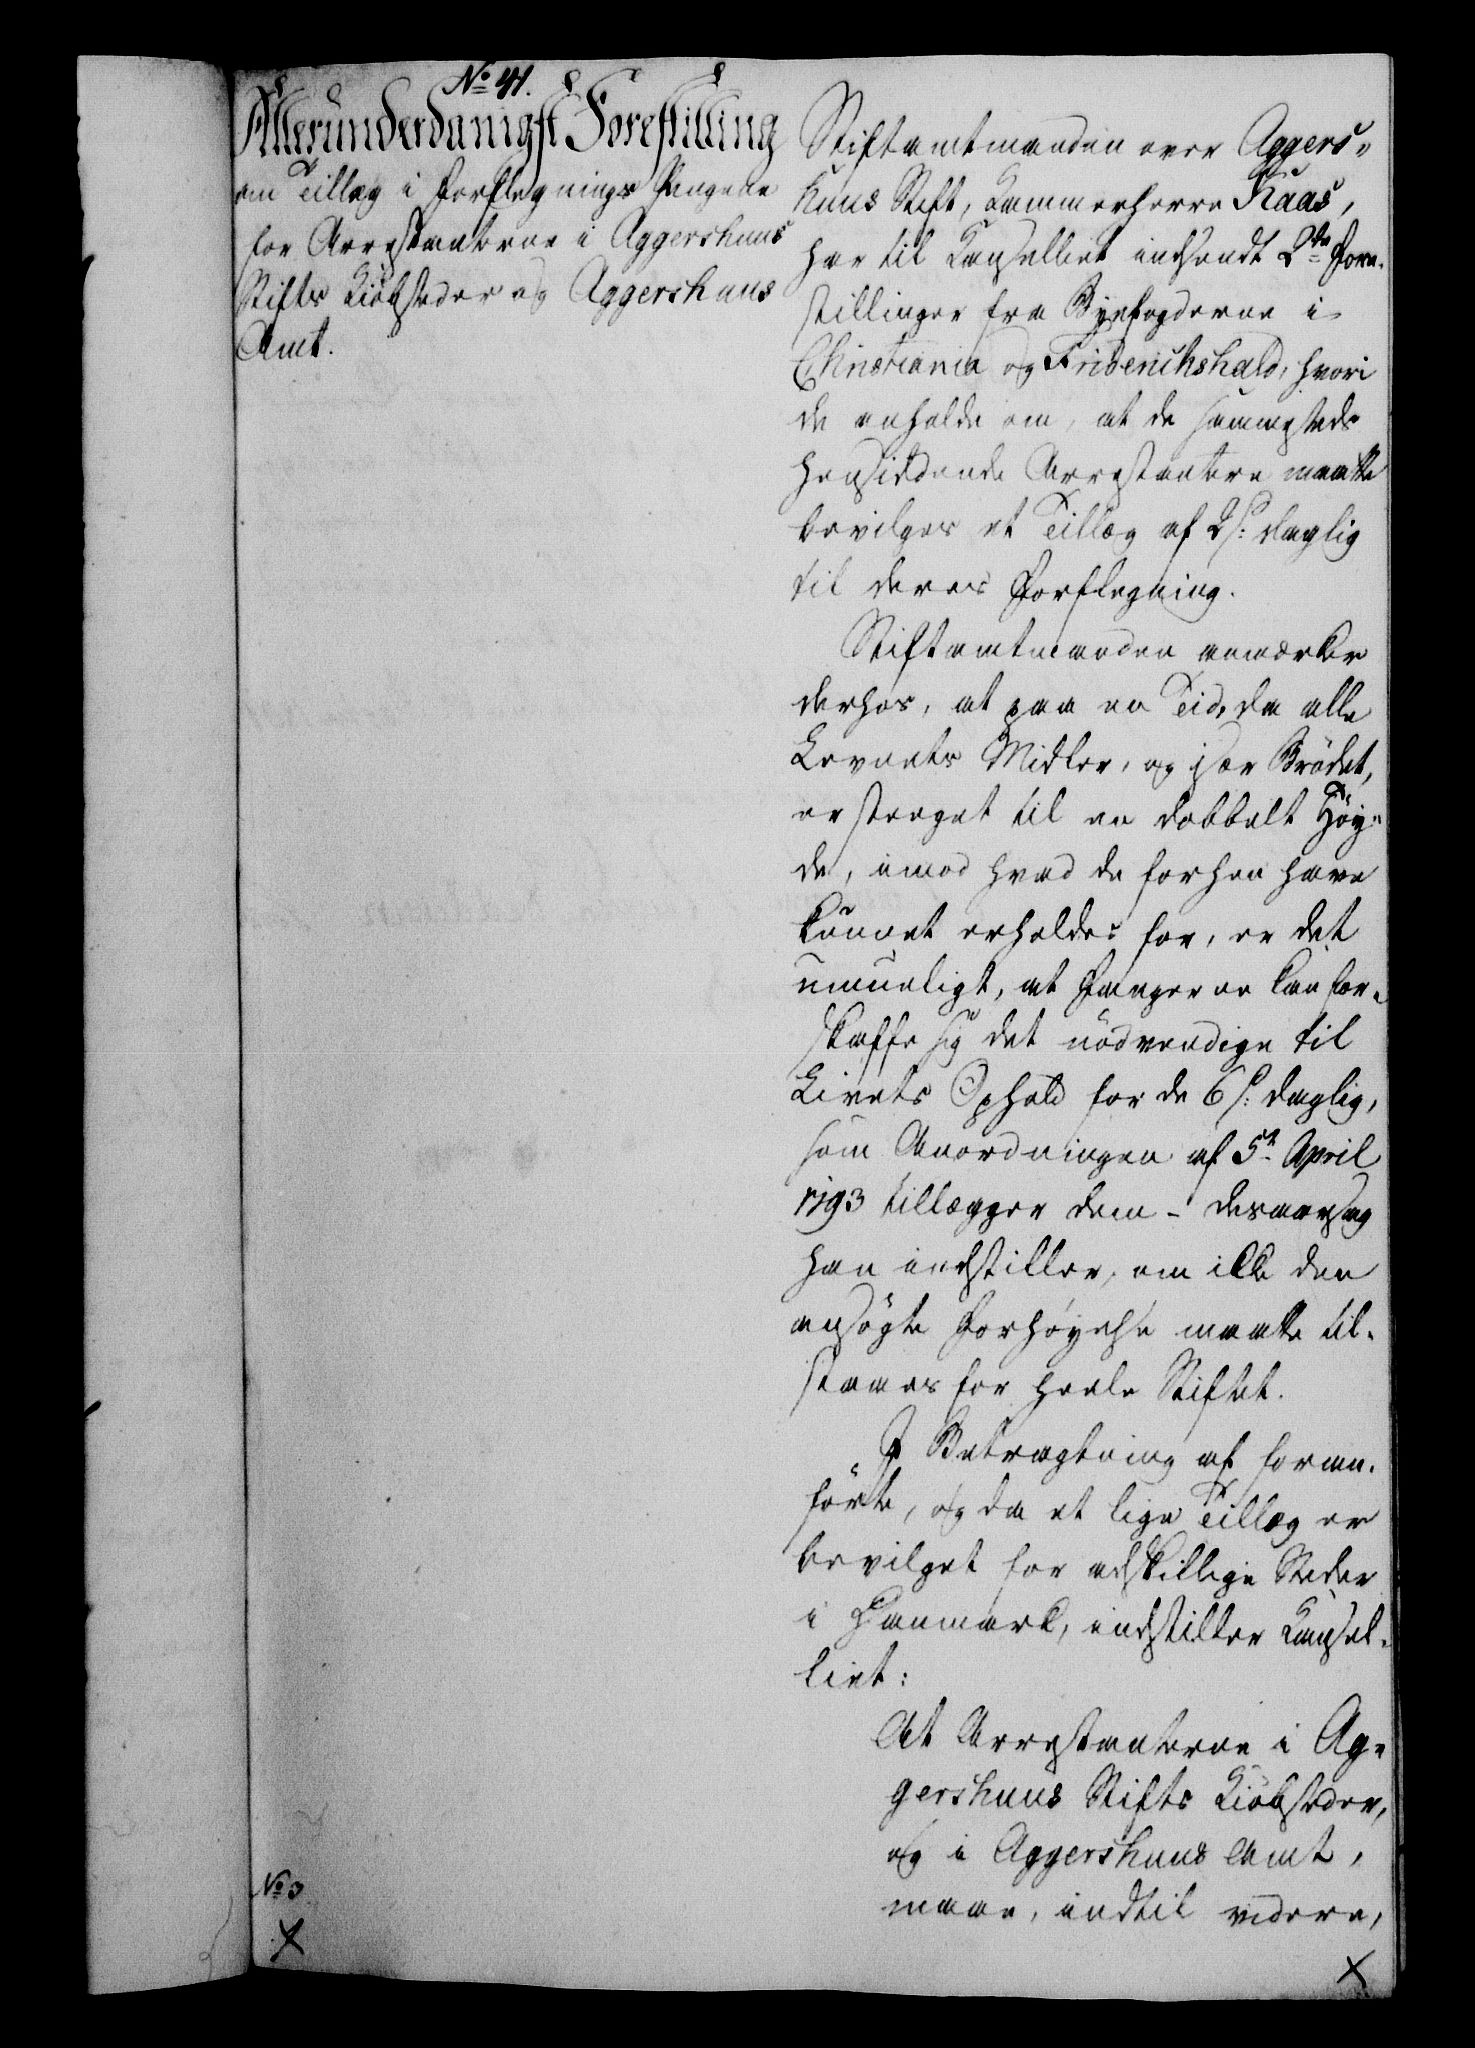 No 41.
Allerunderdanigst Forestilling
om Tillæg i Forflegnings Pengene
for Arrestanterne i Aggershuus
Stifts Kiöbsteder og Aggershuus
Amt.
Stiftamtmanden over Aggers-
huus Stift, Kammerherre Kaas,
har til Cancelliet indsendt 2de Fore-
stillinger fra Byefogderne i
Christiania og Friderichshald, hvori
de anholde om, at de sammesteds
hensiddende Arrestantere maatte
bevilges et Tillæg af 2 s: daglig
til deres Forflegning.
Stiftamtmanden anmærker
derhos, at paa en Tid, da alle
Levnets Midler, og især Brödet,
er steeget til en dobbelt Höy-
de, imod hvad de forhen have
kunnet erholdes for, er det
umueligt, at Fangerne kan for-
skaffe sig det nödvendige til
Livets Ophold for de 6 s: daglig,
som Anordningen af 5t April
1793 tillægger dem - desaarsag
han indstiller, om ikke den
ansögte Forhøyelse maatte til-
staaes for heele Stiftet.
I Betragtning af foran-
förte, og da et lige Tillæg er
bevilget for adskillige Steder
i Danmark, indstiller Cancel-
liet:
At Arrestanterne i Ag-
gershuus Stifts Kiöbsteder,
og i Aggershuus Amt,
maae, indtil videre,
No 3